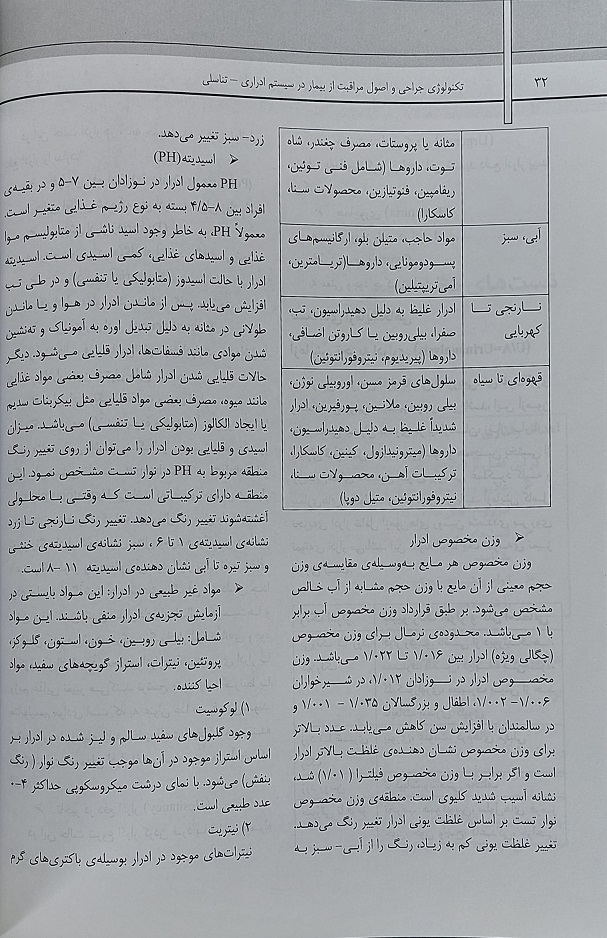 ۳۲
تکنولوژی جراحی و اصول مراقبت از بیمار در سیستم ادراری – تناسلی
مثانه یا پروستات، مصرف چغندر، شاه
توت، داروها (شامل فنی توئین،
ریفامپین، فنوتیازین، محصولات سنا،
کاسکارا)
آبی، سبز
مواد حاجب، متیلن بلو، ارگانیسم‌های
پسودومونایی، داروها(تریامترین،
آمی‌تریپتیلین)
نارنجی تا
کهربایی
ادرار غلیظ به دلیل دهیدراسیون، تب،
صفرا، بیلی‌روبین یا کاروتن اضافی،
داروها (پیریدیوم، نیتروفورانتوئین)
قهوه‌ای تا سیاه
سلول‌های قرمز مسن، اوروبیلی نوژن،
بیلی روبین، ملانین، پورفیرین، ادرار
شدیداً غلیظ به دلیل دهیدراسیون،
داروها (میترونیدازول، کینین، کاسکارا،
ترکیبات آهن، محصولات سنا،
نیتروفورانتوئین، متیل دوپا)
➢ وزن مخصوص ادرار
وزن مخصوص هر مایع به‌وسیله‌ی مقایسه‌ی وزن
حجم معینی از آن مایع با وزن حجم مشابه از آب خالص
مشخص می‌شود. بر طبق قرارداد وزن مخصوص آب برابر
با ۱ می‌باشد. محدوده‌ی نرمال برای وزن مخصوص
(چگالی ویژه) ادرار بین ۱/۰۱۶ تا ۱/۰۲۲ می‌باشد. وزن
مخصوص ادرار در نوزادان ۱/۰۱۲، در شیرخواران
۱/۰۰۶– ۱/۰۰۲، اطفال و بزرگسالان ۱/۰۳۵ – ۱/۰۰۱ و
در سالمندان با افزایش سن کاهش می‌یابد. عدد بالاتر
برای وزن مخصوص نشان دهنده‌ی غلظت بالاتر ادرار
است و اگر برابر با وزن مخصوص فیلترا (۱/۰۱) شد،
نشانه آسیب شدید کلیوی است. منطقه‌ی وزن مخصوص
نوار تست بر اساس غلظت یونی ادرار تغییر رنگ می‌دهد.
تغییر غلظت یونی کم به زیاد، رنگ را از آبی– سبز به
زرد– سبز تغییر می‌دهد.
➢ اسیدیته(PH)
PH معمول ادرار در نوزادان بین ۷–۵ و در بقیه‌ی
افراد بین ۸–۴/۵ بسته به نوع رژیم غذایی متغیر است.
معمولاً PH، به خاطر وجود اسید ناشی از متابولیسم موا
غذایی و اسیدهای غذایی، کمی اسیدی است. اسیدیته
ادرار با حالت اسیدوز (متابولیکی یا تنفسی) و در طی تب
افزایش می‌یابد. پس از ماندن ادرار در هوا و یا ماندن
طولانی در مثانه به دلیل تبدیل اوره به آمونیاک و ته‌نشین
شدن موادی مانند فسفات‌ها، ادرار قلیایی می‌شود. دیگر
حالات قلیایی شدن ادرار شامل مصرف بعضی مواد غذایی
مانند میوه، مصرف بعضی مواد قلیایی مثل بیکربنات سدیم
یا ایجاد الکالوز (متابولیکی یا تنفسی) می‌باشد. میزان
اسیدی و قلیایی بودن ادرار را می‌توان از روی تغییر رنگ
منطقه مربوط به PH در نوار تست مشخص نمود. این
منطقه دارای ترکیباتی است که وقتی با محلولی
آغشته‌شوند تغییر رنگ می‌دهد. تغییر رنگ نارنجی تا زرد
نشانه‌ی اسیدیته‌ی ۱ تا ۶ ، سبز نشانه‌ی اسیدیته‌ی خنثی
و سبز تیره تا آبی نشان دهنده‌ی اسیدیته ۱۱ –۸ است.
❖ مواد غیر طبیعی در ادرار: این مواد بایستی در
آزمایش تجزیه‌ی ادرار منفی باشند. این مواد
شامل: بیلی روبین، خون، استون، گلوکز،
پروتئین، نیترات، استراز گویچه‌های سفید، مواد
احیا کننده.
۱) لوکوسیت
وجود گلبول‌های سفید سالم و لیز شده در ادرار بر
اساس استراز موجود در آن‌ها موجب تغییر رنگ نوار (رنگ
بنفش) می‌شود. با نمای درشت میکروسکوپی حداکثر ۴–۰
عدد طبیعی است.
۲) نیتریت
نیترات‌های موجود در ادرار بوسیله‌ی باکتری‌های گرم